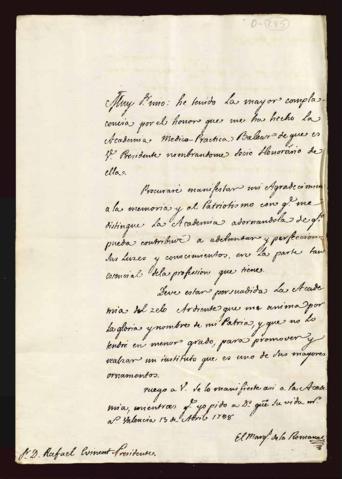 Muy Sr. mio: he tenido la mayor compla-
cencia por el honor que me ha hecho la
Academia Medico-Practica Balear de que es
V. Presidente nombrandome socio Honorario de
ella.
Procuraré manifestar mi Agradecimien
a la memoria y al Patriotismo con qe. me
distingue la Academia adornandola de qto
pueda contribuir a adelantar y perfeccionar
sus luzes y conocimientos, en la parte tan
esencial dela profesion que tiene.
Deve estar persuadida la Acade
mia del zelo Ardiente que me anima por
la gloria y nombres de mi Patria, y que no lo
tendré en menor grado, para promover y
realzar un instituto que es uno de sus mayores
ornamentos.
ruego a V. se lo manifieste asi a la Acade
mia, mientras qe. yo pido a Ds. gue. su vida ms.
as. Valencia 13 de Abril 1788
El Marqs. de la Romana
Sr. D. Rafael Evinent Presidente